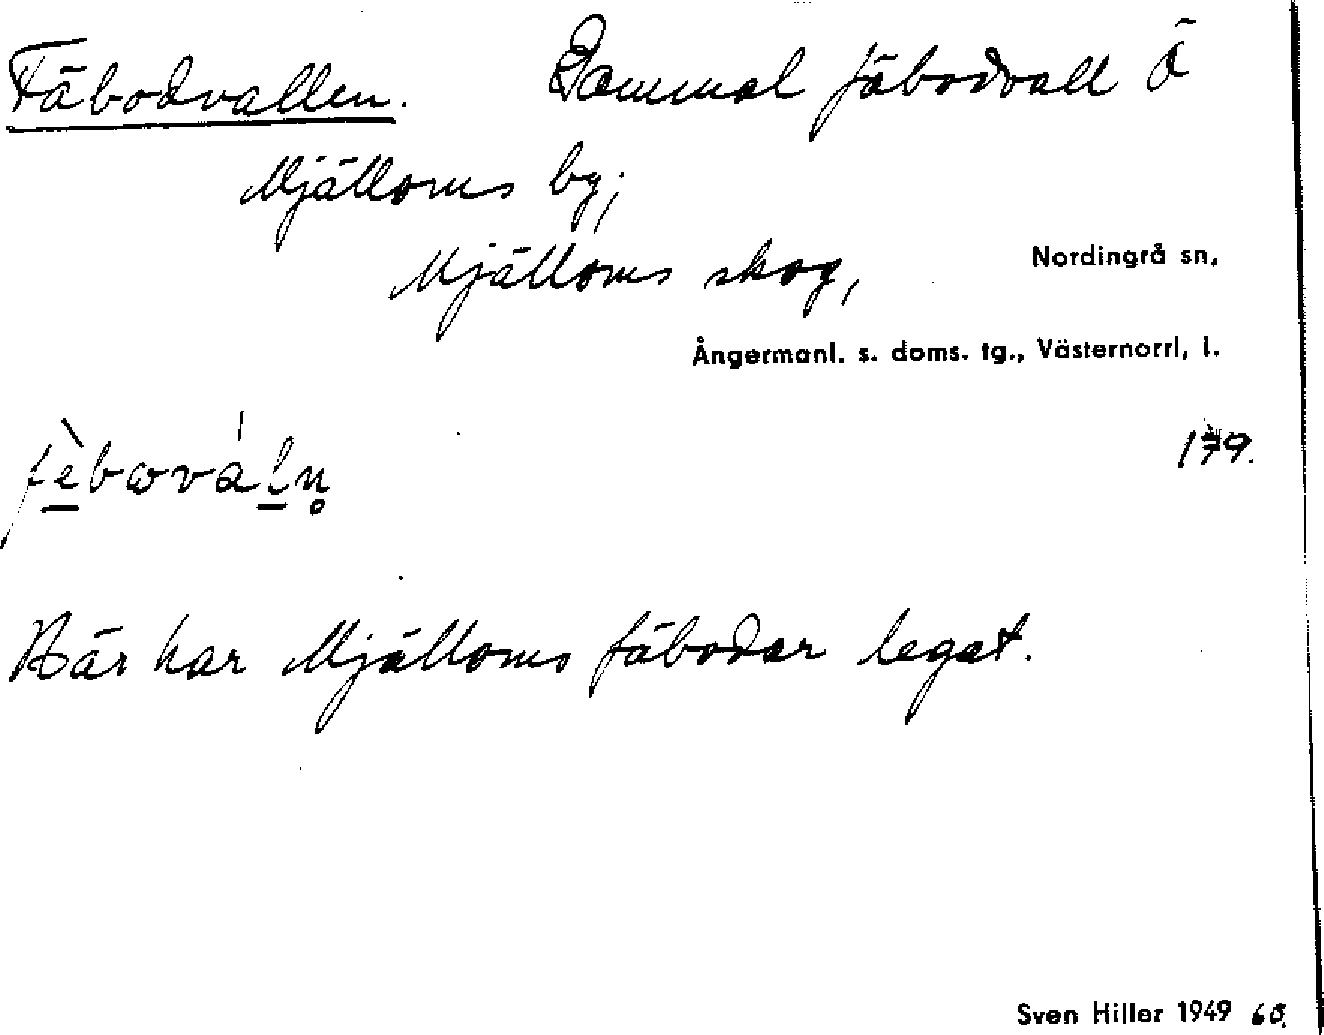 Fäbodvallen. Gammal fäbodvall Ö
Mjälloms by;
Mjälloms skog, Nordingrå sn,
Ångermanl. s. doms. tg., Västernorrl, l.
fèbωvàl̲n̥ 179.
Här har Mjälloms fäbodar legat.
Sven Hiller 1949